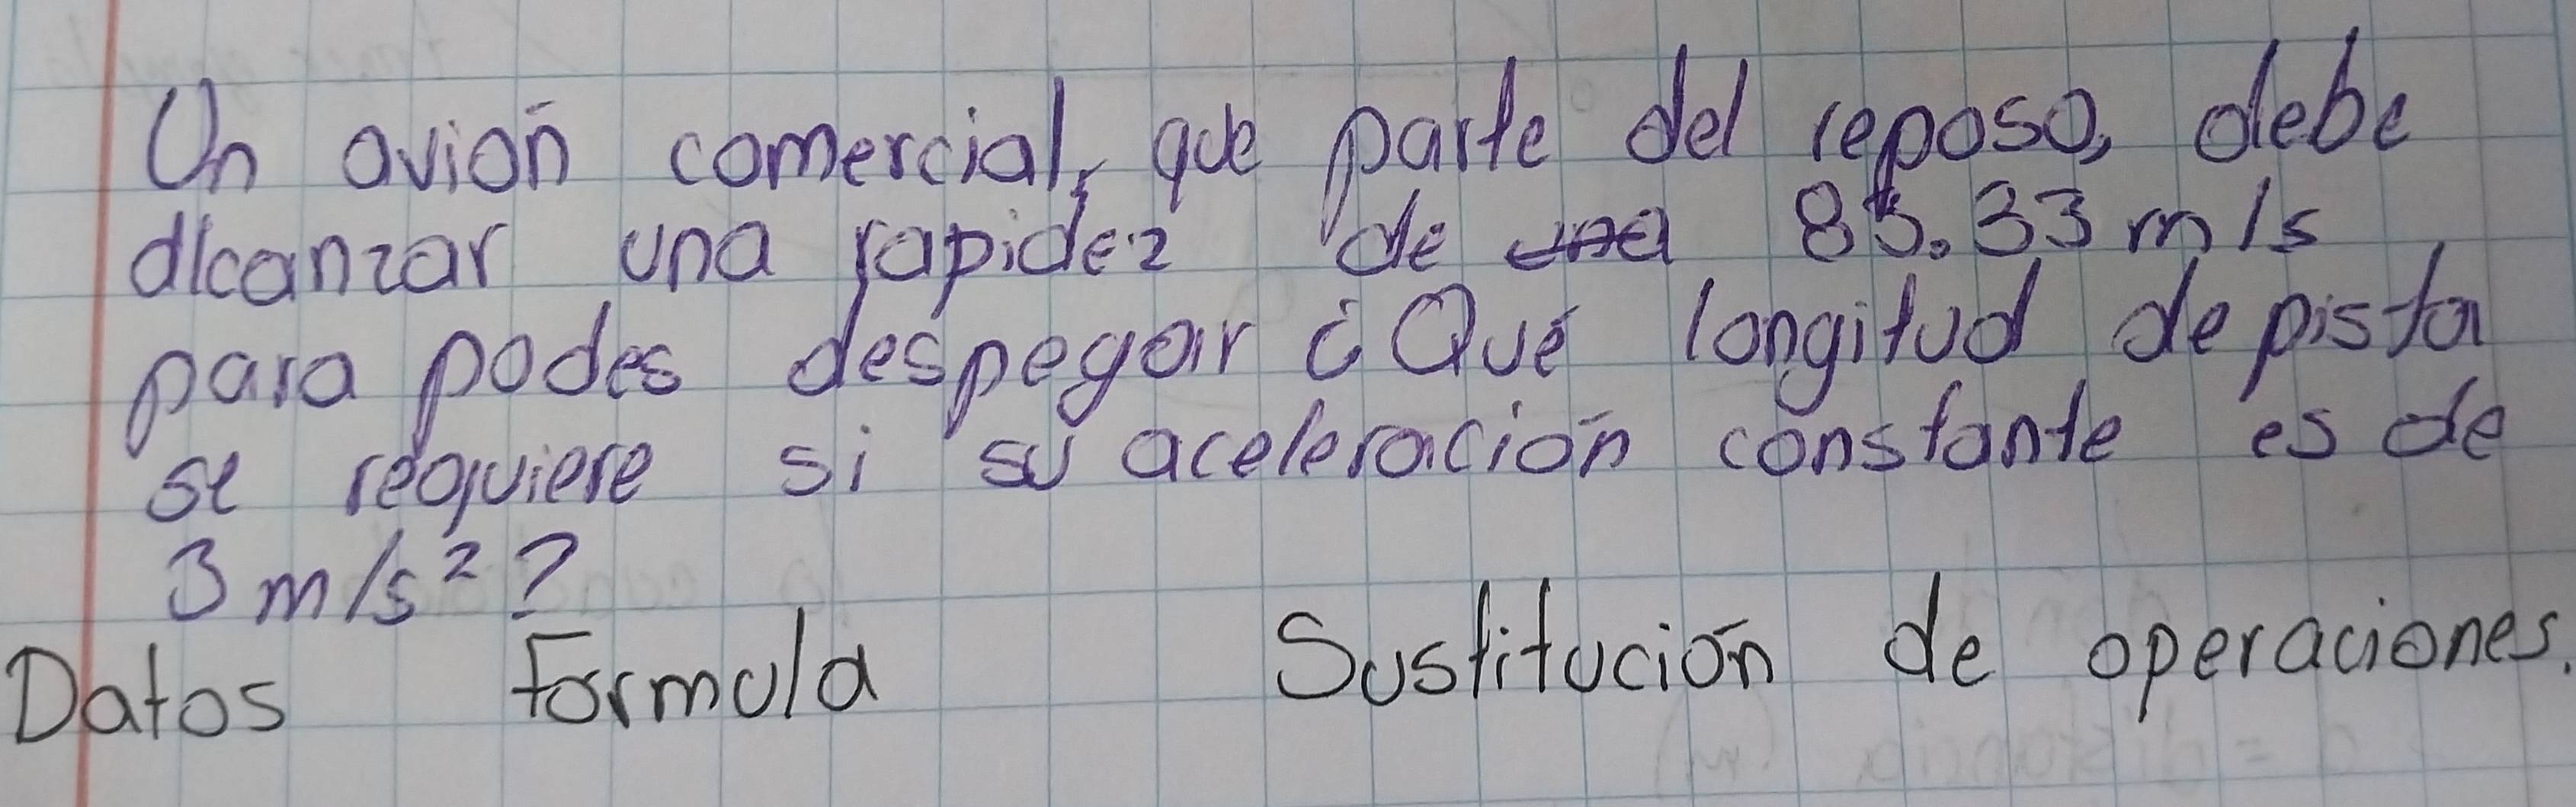 Un avión comercial, que parte del reposo, debe
alcanzar una rapidez de una 85.33 m/s
para podes despegar ¿Qué longitud de pista
se requiere si su aceleración constante es de
3 m/s²?
Datos Formula Sustitución de operaciones.